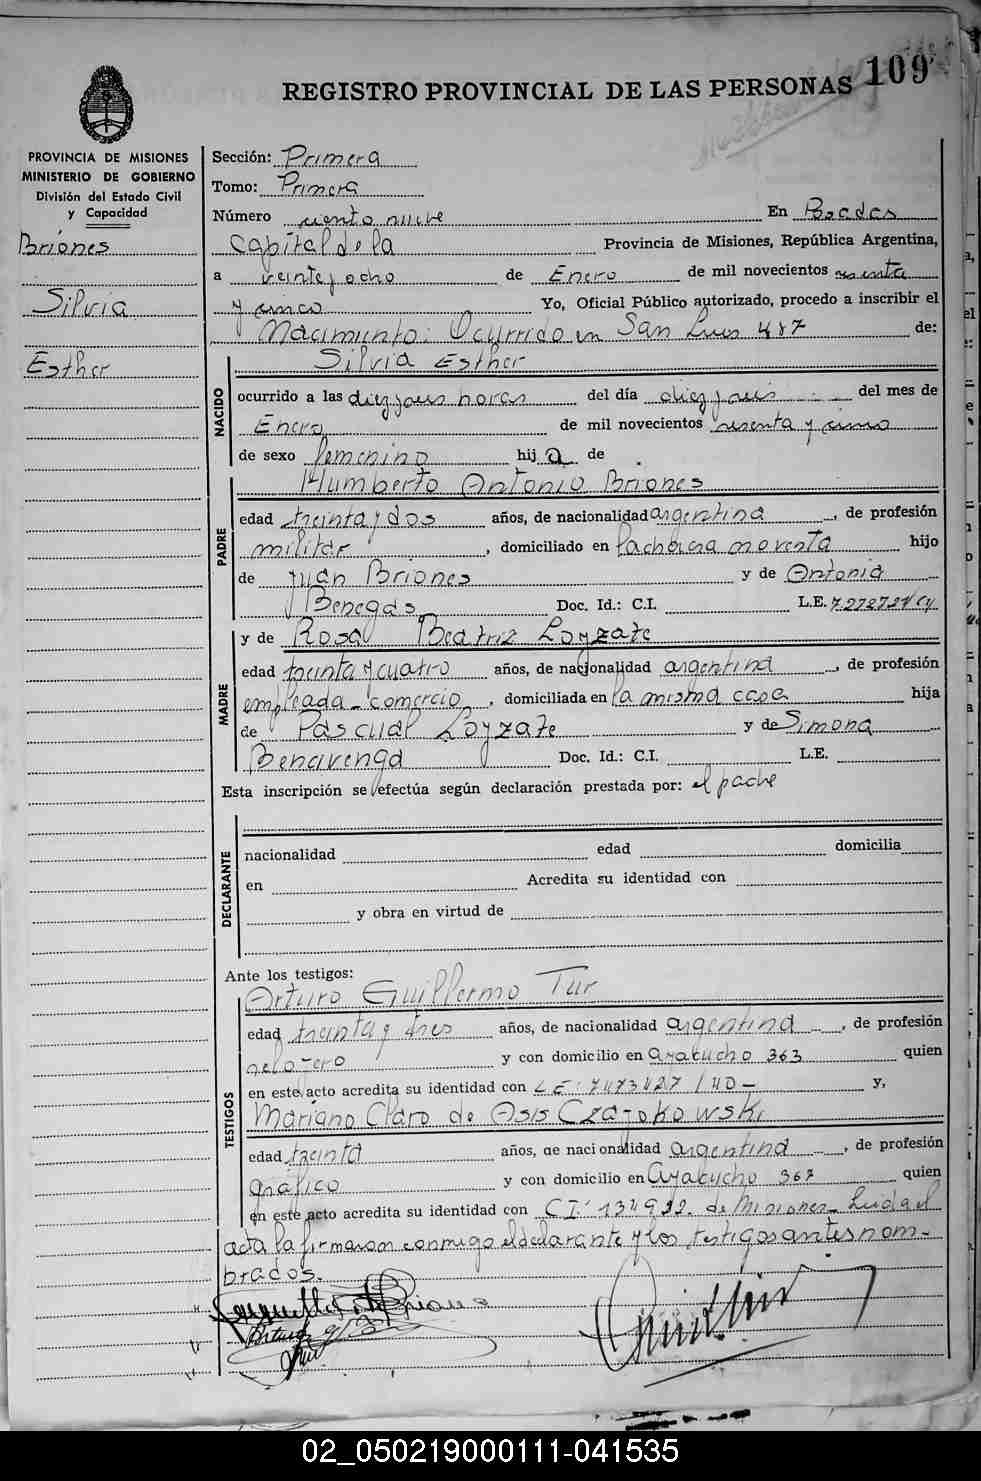 REGISTRO PROVINCIAL DE LAS PERSONAS 109
PROVINCIA DE MISIONES
MINISTERIO DE GOBIERNO
División del Estado Civil
y Capacidad
Briones
Silvia
Esther
Sección: Primera
Tomo: Primera
Número ciento nueve En Posadas
Capital de la Provincia de Misiones, República Argentina,
a veinte y ocho de Enero de mil novecientos sesenta
y cinco Yo, Oficial Público autorizado, procedo a inscribir el
Nacimiento: Ocurrido en San Luis 487 de:
Silvia Esther
NACIDO
ocurrido a las diez y seis horas del día diez y seis del mes de
Enero de mil novecientos sesenta y cinco
de sexo femenino hija de
Humberto Antonio Briones
PADRE
edad treinta y dos años, de nacionalidad argentina, de profesión
militar, domiciliado en Lacherera noventa hijo
de Juan Briones y de Antonia
Benegas Doc. Id.: C.I. L.E.
y de Rosa Beatriz Loyzate
MADRE
edad treinta y cuatro años, de nacionalidad argentina, de profesión
empleada comercio, domiciliada en la misma casa hija
de Pascual Loyzate y de Simona
Benavenga Doc. Id.: C.I. L.E.
Esta inscripción se efectúa según declaración prestada por: el padre
DECLARANTE
nacionalidad edad domicilia
en Acredita su identidad con
y obra en virtud de
Ante los testigos:
Arturo Guillermo Tur
TESTIGOS
edad treinta y tres años, de nacionalidad argentina, de profesión
relojero y con domicilio en ayacucho 363 quien
en este acto acredita su identidad con L.E: 7473427/40- y,
Mariano Claro de Asis Czajkowski
edad treinta años, de nacionalidad argentina, de profesión
gráfico y con domicilio en ayacucho 367 quien
en este acto acredita su identidad con C.I: 134922. de Misiones. Leida el
acta la firmaron conmigo el declarante y los testigos antes nom-
brados.
02_050219000111-041535